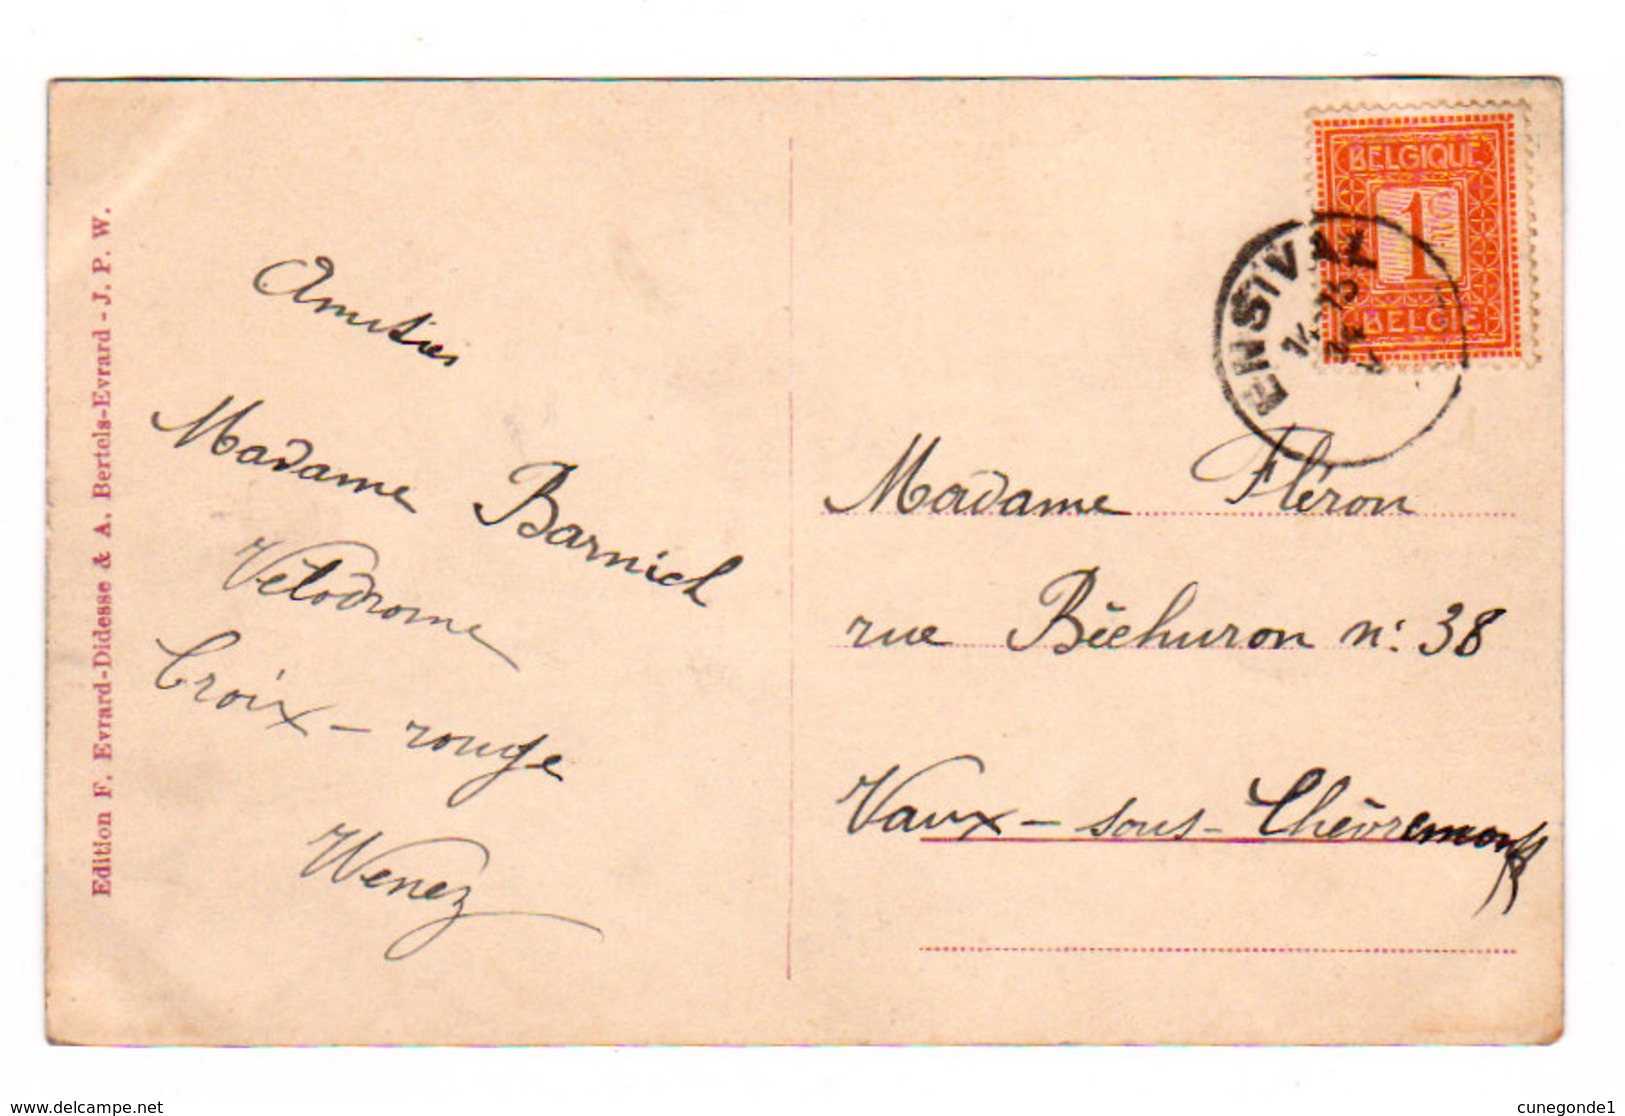 Edition F. Evrard-Didesse & A. Bertels-Evrard - J. P. W.
Amitiés
Madame Barnich
Vélodrome
Croix-rouge
Wenez
BELGIQUE
1
BELGIE
ENSIVAL
Madame Fléron
rue Béchuron n: 38
Vaux-sous-Chèvremont
www.delcampe.net
cunegonde1